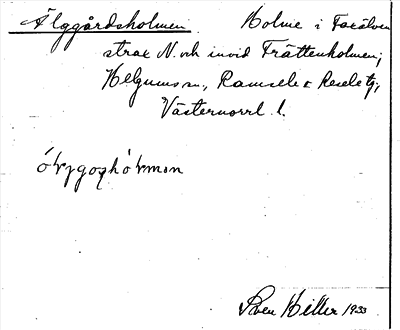 Älggårdsholmen. Holme i Faxälven
strax N. och invid Trättenholmen;
Helgums sn, Ramsele o. Resele tg,
Västernorrl. l.
Sven Hiller 1933